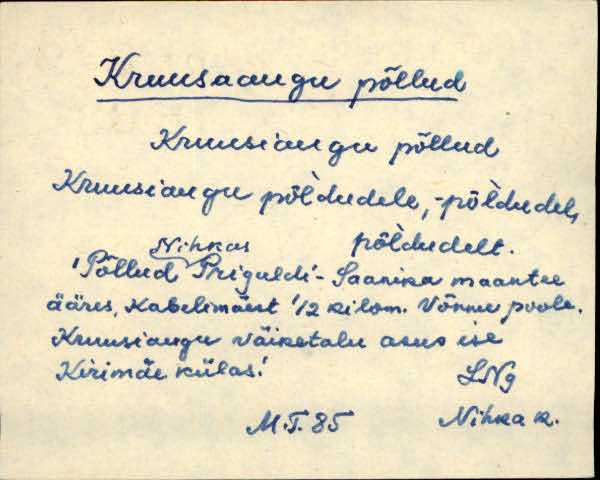 Kruusaaugu põllud
Kruusiaugu põllud
Kruusiaugu põl̀dudele, -põl̀dudel,
põl̀dudelt.
Nihkas
'Põllud Priguldi - Saanika maantee
ääres, Kabelimäest 1/2 kilom. Võnnu poole.
Kruusiaugu väiketalu asus ise
Kirimäe külas.'
LNg
M.T. 85
Nihka k.